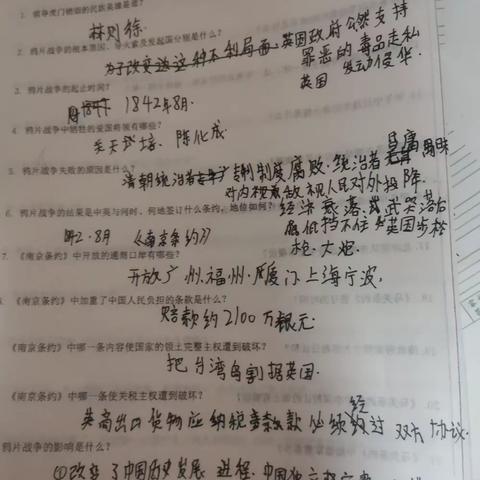 1. 领导虎门销烟的民族英雄是谁?
林则徐.
2. 鸦片战争的根本原因、导火索及发起国分别是什么?
为了改变这种不利局面,英国政府公然支持
罪恶的毒品走私
英国 发动侵华.
3. 鸦片战争的起止时间?
1842年8月.
4. 鸦片战争中牺牲的爱国将领有哪些?
关天培、陈化成
5. 鸦片战争失败的原因是什么?
清朝统治者 专制制度腐败·统治者
对内视 敌视人民对外投降.
6. 鸦片战争的结果是中英与何时、何地签订什么条约,地位如何?
经济 落 武器落后
低挡不住 英国步枪
2·8月 《南京条约》
枪·大炮.
7. 《南京条约》中开放的通商口岸有哪些?
开放广州.福州·厦门上海宁波.
8. 《南京条约》中加重了中国人民负担的条款是什么?
赔款约2100万银元.
《南京条约》中哪一条内容使国家的领土完整主权遭到破坏?
把台湾岛割据英国.
《南京条约》中哪一条使关税主权遭到破坏?
英商出口货物应纳税 款 必须经过双方协议.
鸦片战争的影响是什么?
①改变了中国历史发展进程.中国独立